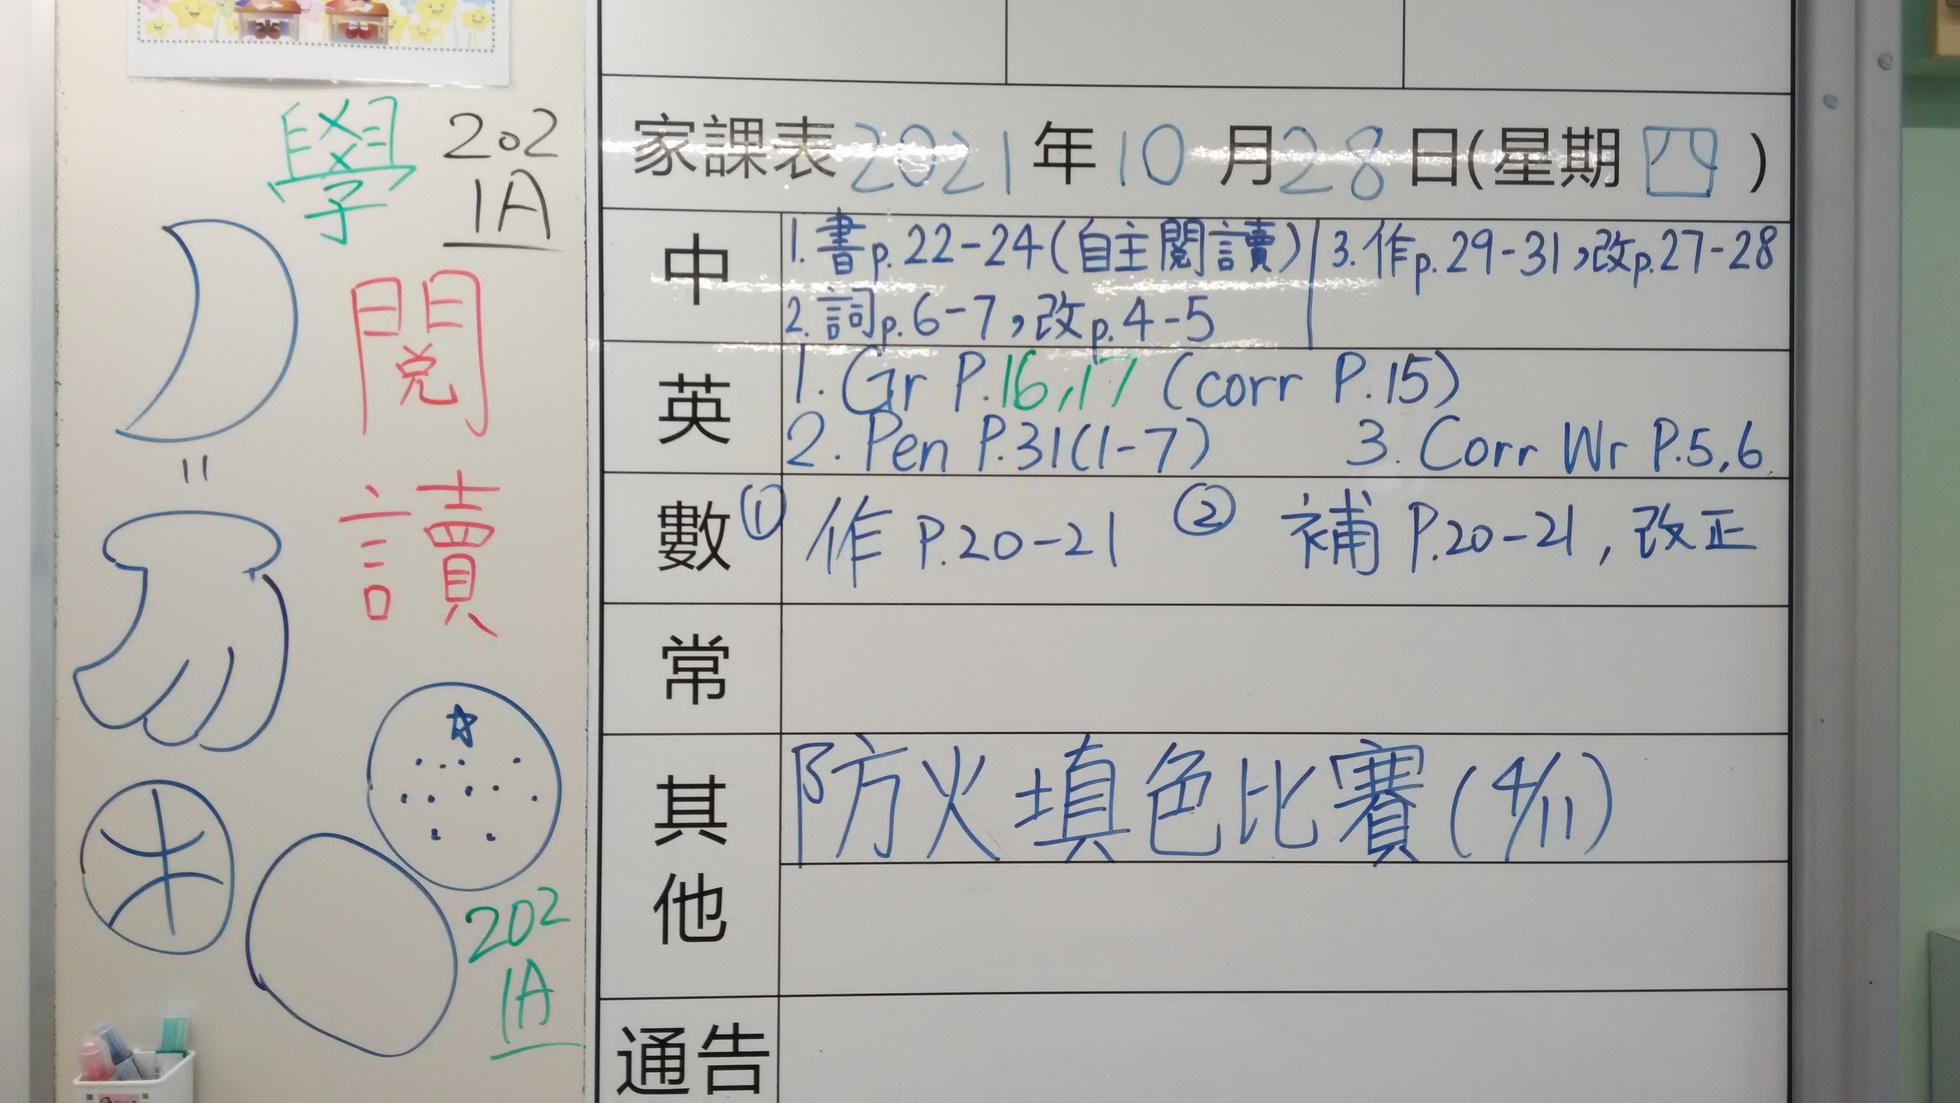 學
202
1A
閱
讀
202
1A
家課表2021年10月28日(星期四)
中
1.書p.22-24(自主閱讀)
3.作p.29-31,改p.27-28
2.詞p.6-7,改p.4-5
英
1. Gr P.16,17 (corr P.15)
2. Pen P.31(1-7)
3. Corr Wr P.5,6
數
① 作 P.20-21
② 補 P.20-21, 改正
常
其他
防火填色比賽(4/11)
通告